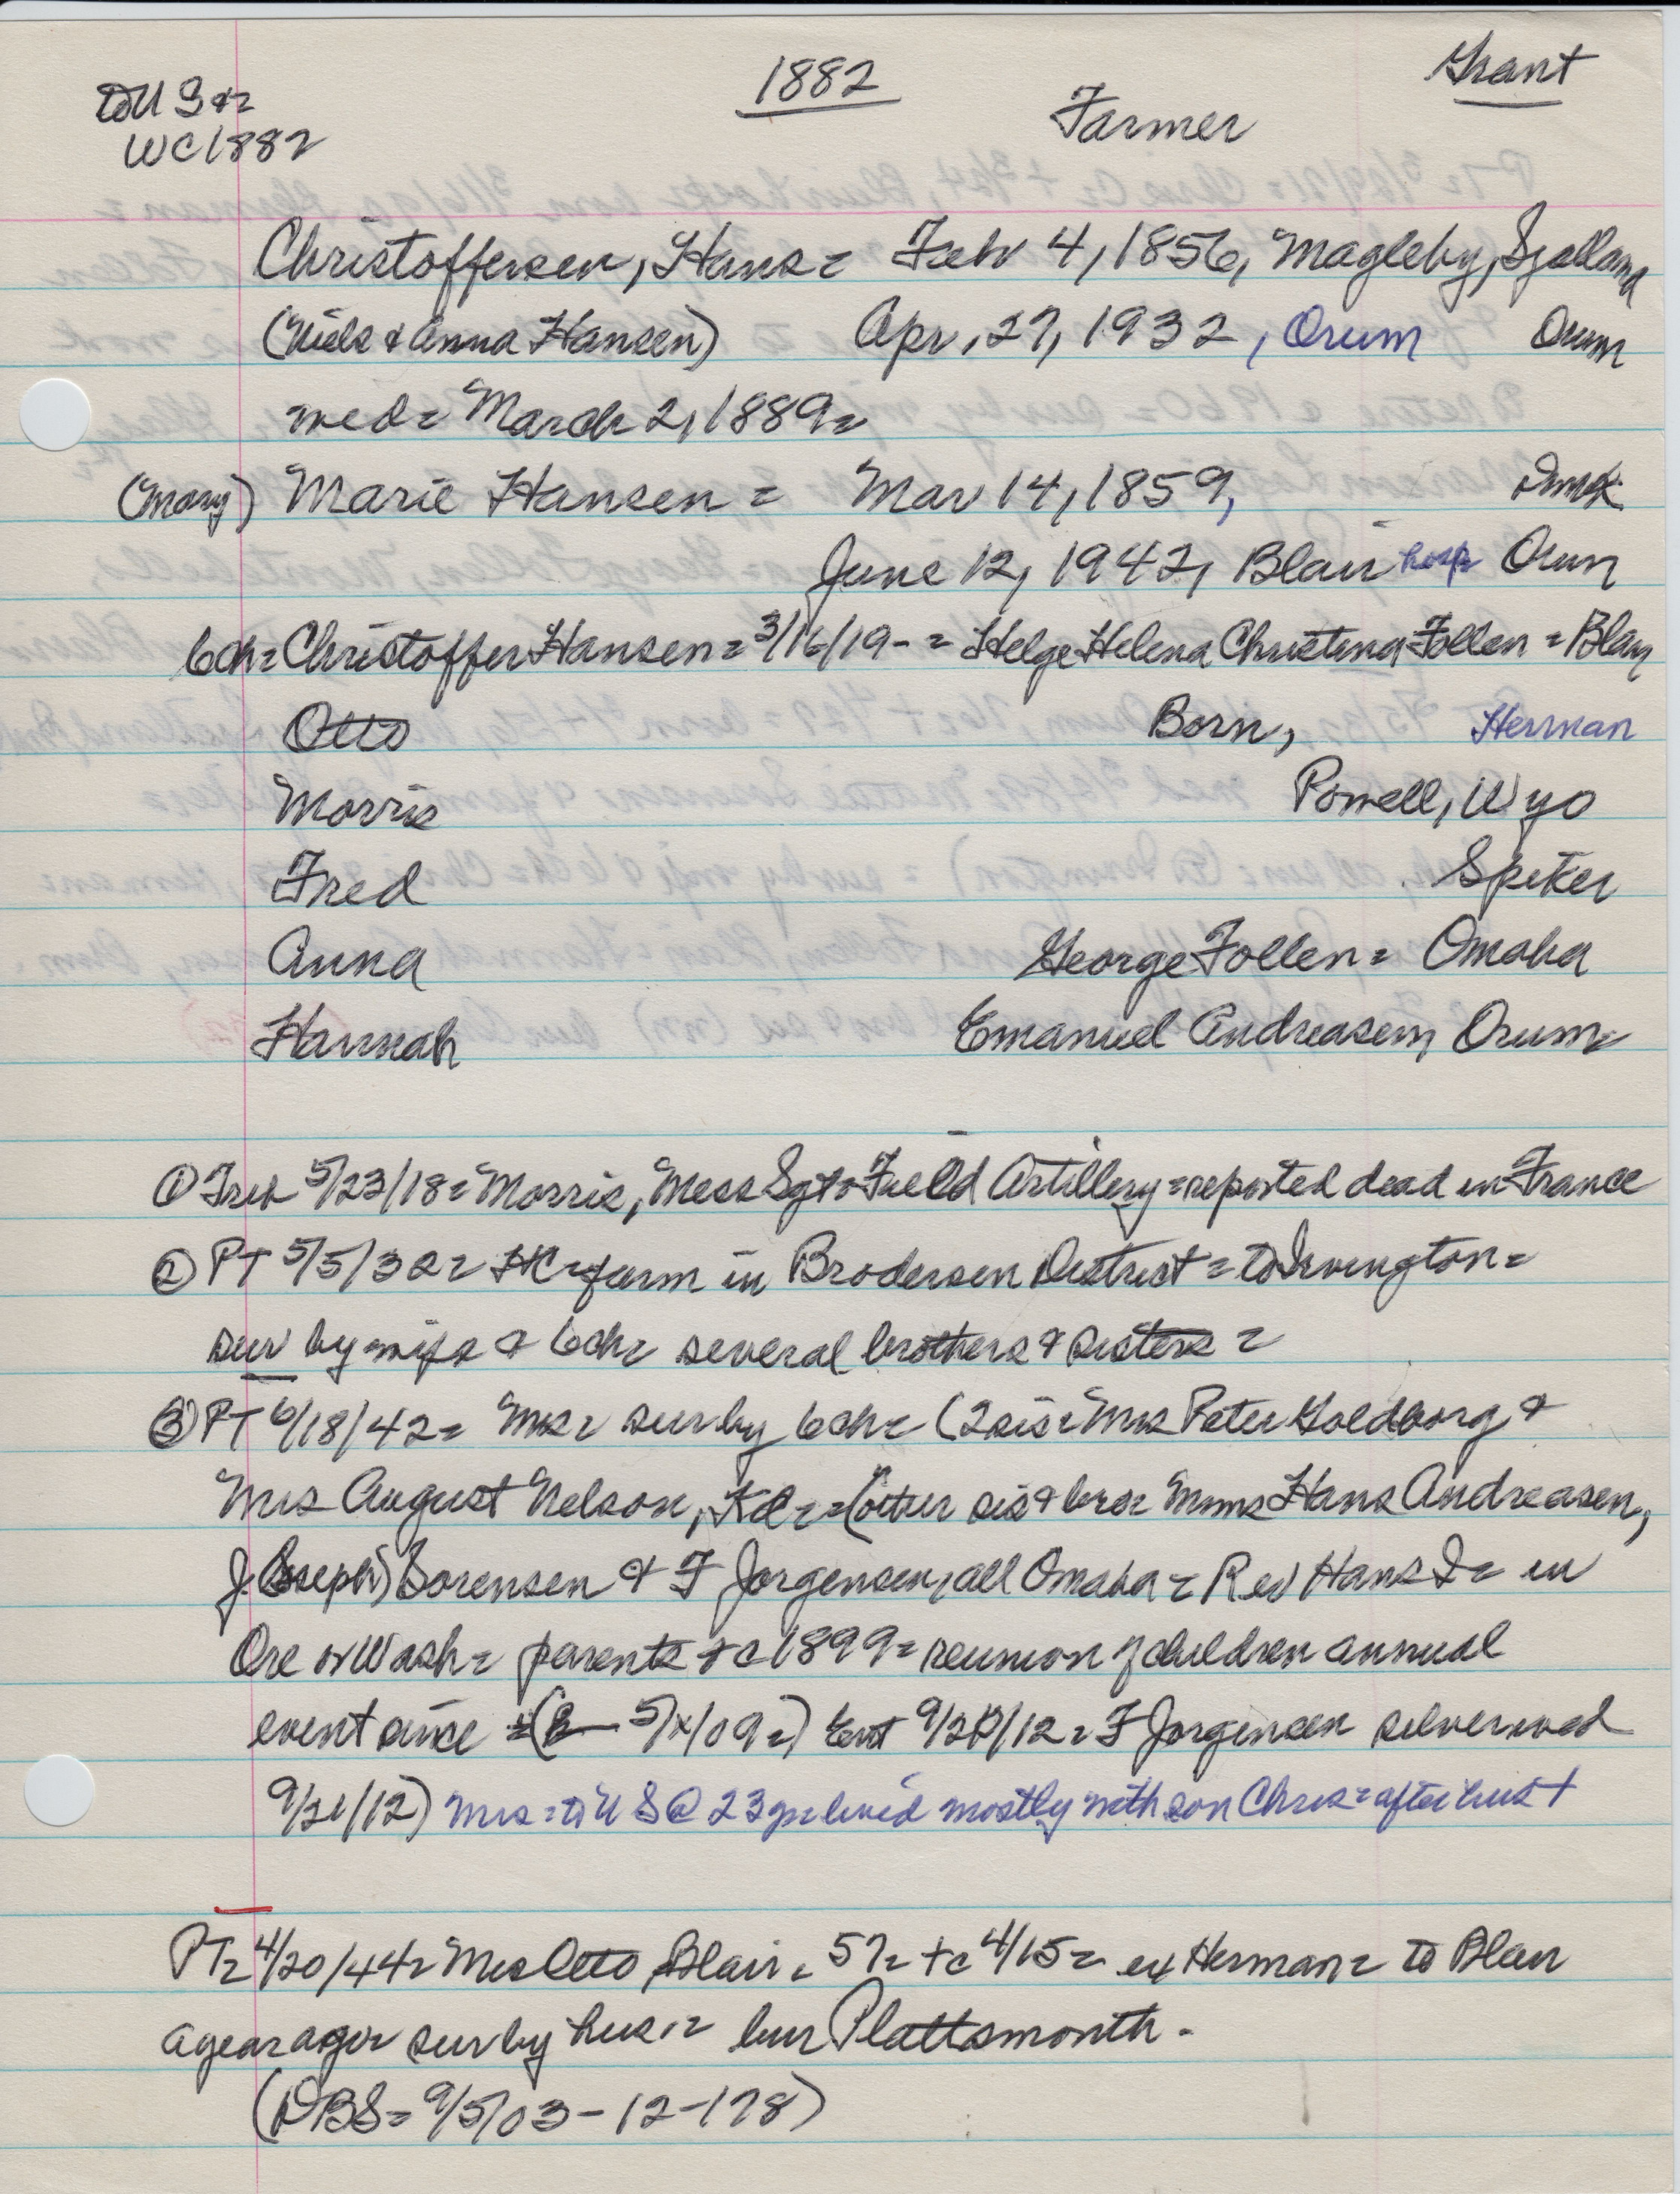 1882
Grant
to U S
WC 1882
Farmer
Christoffersen, Hans = Feb 4, 1856, Magleby, Sjalland
(Niels & Anna Hansen) Apr, 27, 1932, Orum Orum
wed = March 2, 1889 =
(Mary) Marie Hansen = Mar 14, 1859, Dmk
June 12, 1942, Blair hosp Orum
6ch = Christoffer Hansen = 3/16/19- = Helge Helena Christina Follen = Blair
Otto Born, Herman
Morris Powell, Wyo
Fred Spiker
Anna George Follen = Omaha
Hannah Emanuel Andreasen, Orum =
① 5/23/18 = Morris, Mess Sgt = Field Artillery = reported dead in France
② PT 5/5/32 = HC = farm in Brodersen District = to Irvington =
sur by wife & 6ch = several brothers & sisters =
③ PT 6/18/42 = Mrs = sur by 6ch = (2 sis = Mrs Peter Goldborg &
Mrs August Nelson, Kd = = (other sis & bro = Mmes Hans Andreasen,
J (Joseph) Sorensen & F Jorgensen, all Omaha = Rev Hans I = in
Ore or Wash = parents + c 1899 = reunion of children annual
event since = ( 5/x/09 =) Ent 9/20/12 = F Jorgensen silver wed
9/21/12) Mrs = to U S @ 23 y = lived mostly with son Chris = after hus +
PT = 4/20/44 = Mrs Otto, Blair, 57 = + c 4/15 = ex Herman = to Blair
a year ago = sur by hus = bur Plattsmouth -
(DBS = 9/5/03 - 12 - 178)